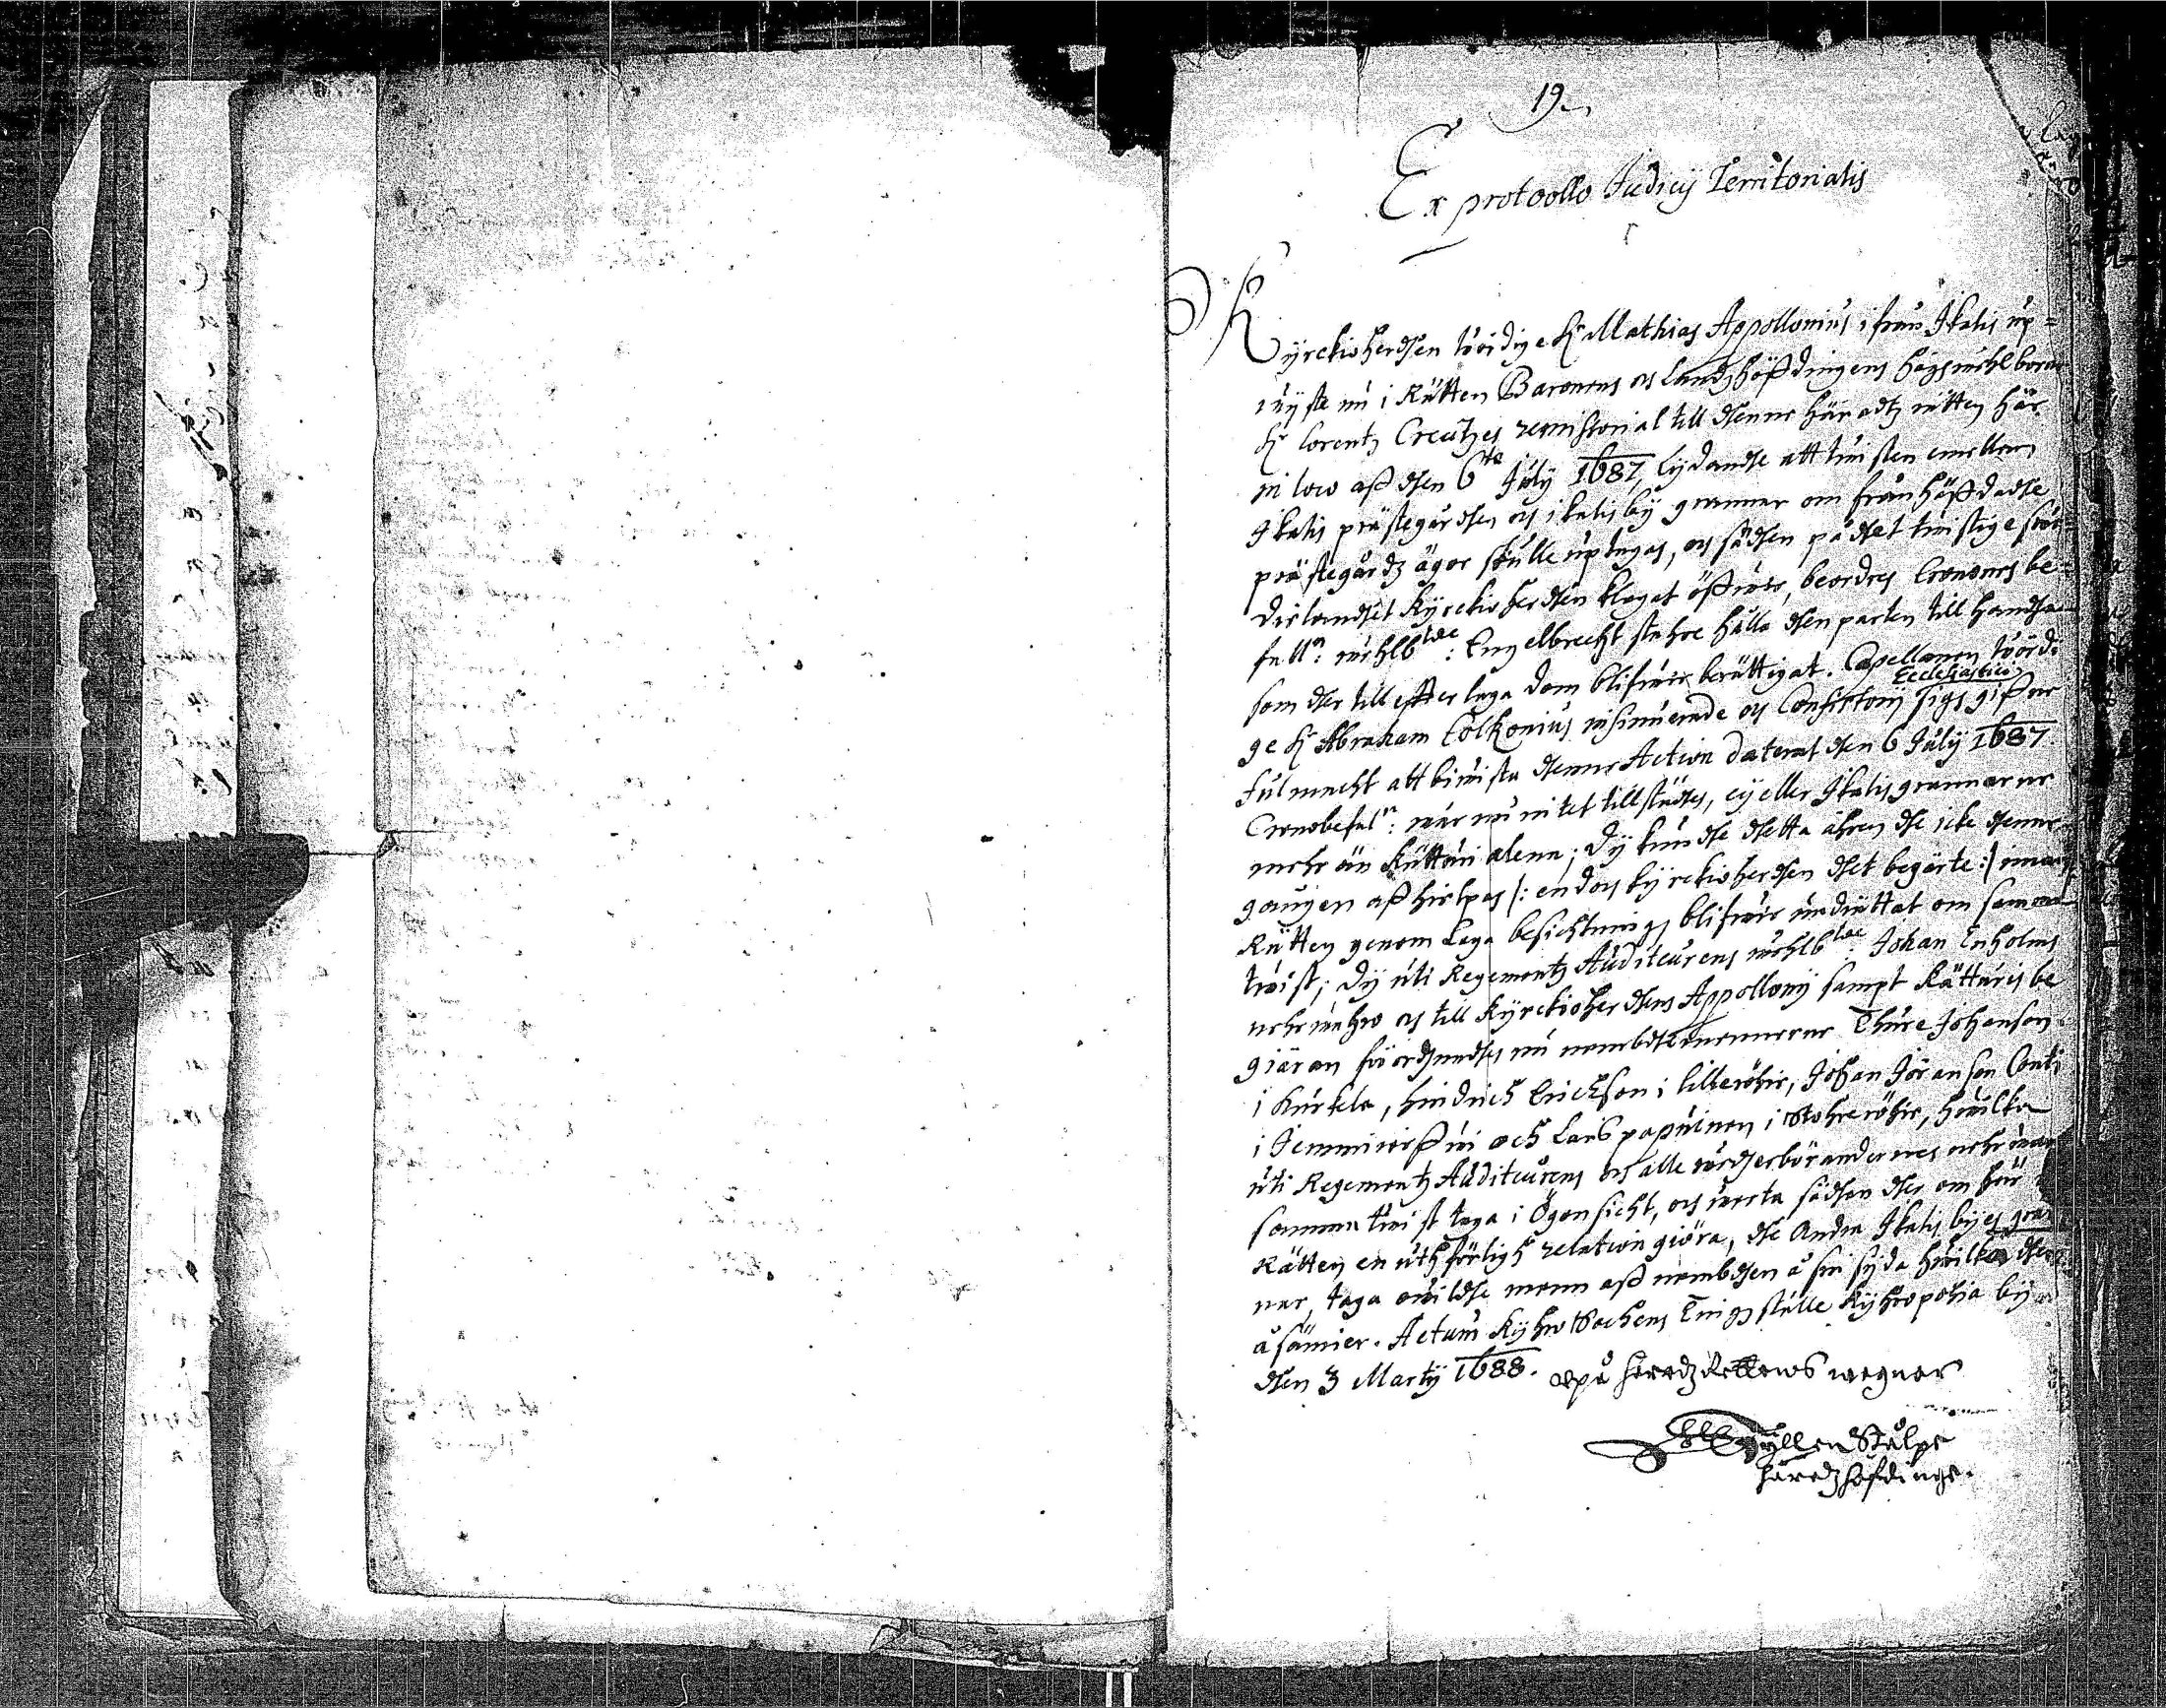 19.
Ex protocollo Judicij Territorialis
Kyrckioherden wördige Hr Mathias Appollonius ifrån Ikalis up=
wyste nu i Rätten Baronens och Landzhöfdingens högwehlborne
Hr Lorentz Creutzes remissorial till denne häradz rätten här
in loco af den 6te July 1687, lydande att twisten emellan
Ikalis prästegården och ikalis by grannar om från höfdade
prästegårdz ägor skulle uptagas, och säden på det twistige
landet Kyrckioherden klagat öfwer, beordres Cronones be=
faln: wehlbtde: Engelbrecht hålla den parten till handa
som der till efter laga dom blifwer berättigat. Capellanen wörd:
ge Hr Abraham Tolkonius insinuerade och Consistorij Ecclesiastici gifne
fulmacht att biwista denne Action daterat den 6 July 1687.
Cronobefaln: war nu intet tillstädes, ey eller Ikalis grannarne
mehr än Rättari alena; Dy kunde detta ährende icke denne
gången afhielpas /: endoch kyrckioherden det begärte :/ innan
Rätten genom Laga besichtning blifwer underrättat om samma
twist; Dy uti Regementz Auditeurens wehlbtde: Johan Enholms
nehrwahro och till Kyrckioherdens Appollonij sampt Rättaris be
giäran förordnades nu nembdemennerne Thure Johanson
i Kurkela, Hindrich Erichson i lilleröhie, Johan Jöranson Conti
i Jemmi och Lars papuinen i Stohreröhie, hwilka
uti Regementz Auditeurens och alle wederbörandernes nehrwaru
samma twist taga i Ögonsicht, och weta säden der om här
Rätten en uthförligh relation giöra, de Andra Ikalis byes gran
nar, taga owilde menn af nembden å sin syda hwilka dhe
å sämier. Actum Kyhro Sochens Tingzställe Kyhropohia by
den 3 Marty 1688. på Häradz Rättens wegnar
Gyllenstålpe
häredzhöfdinge.